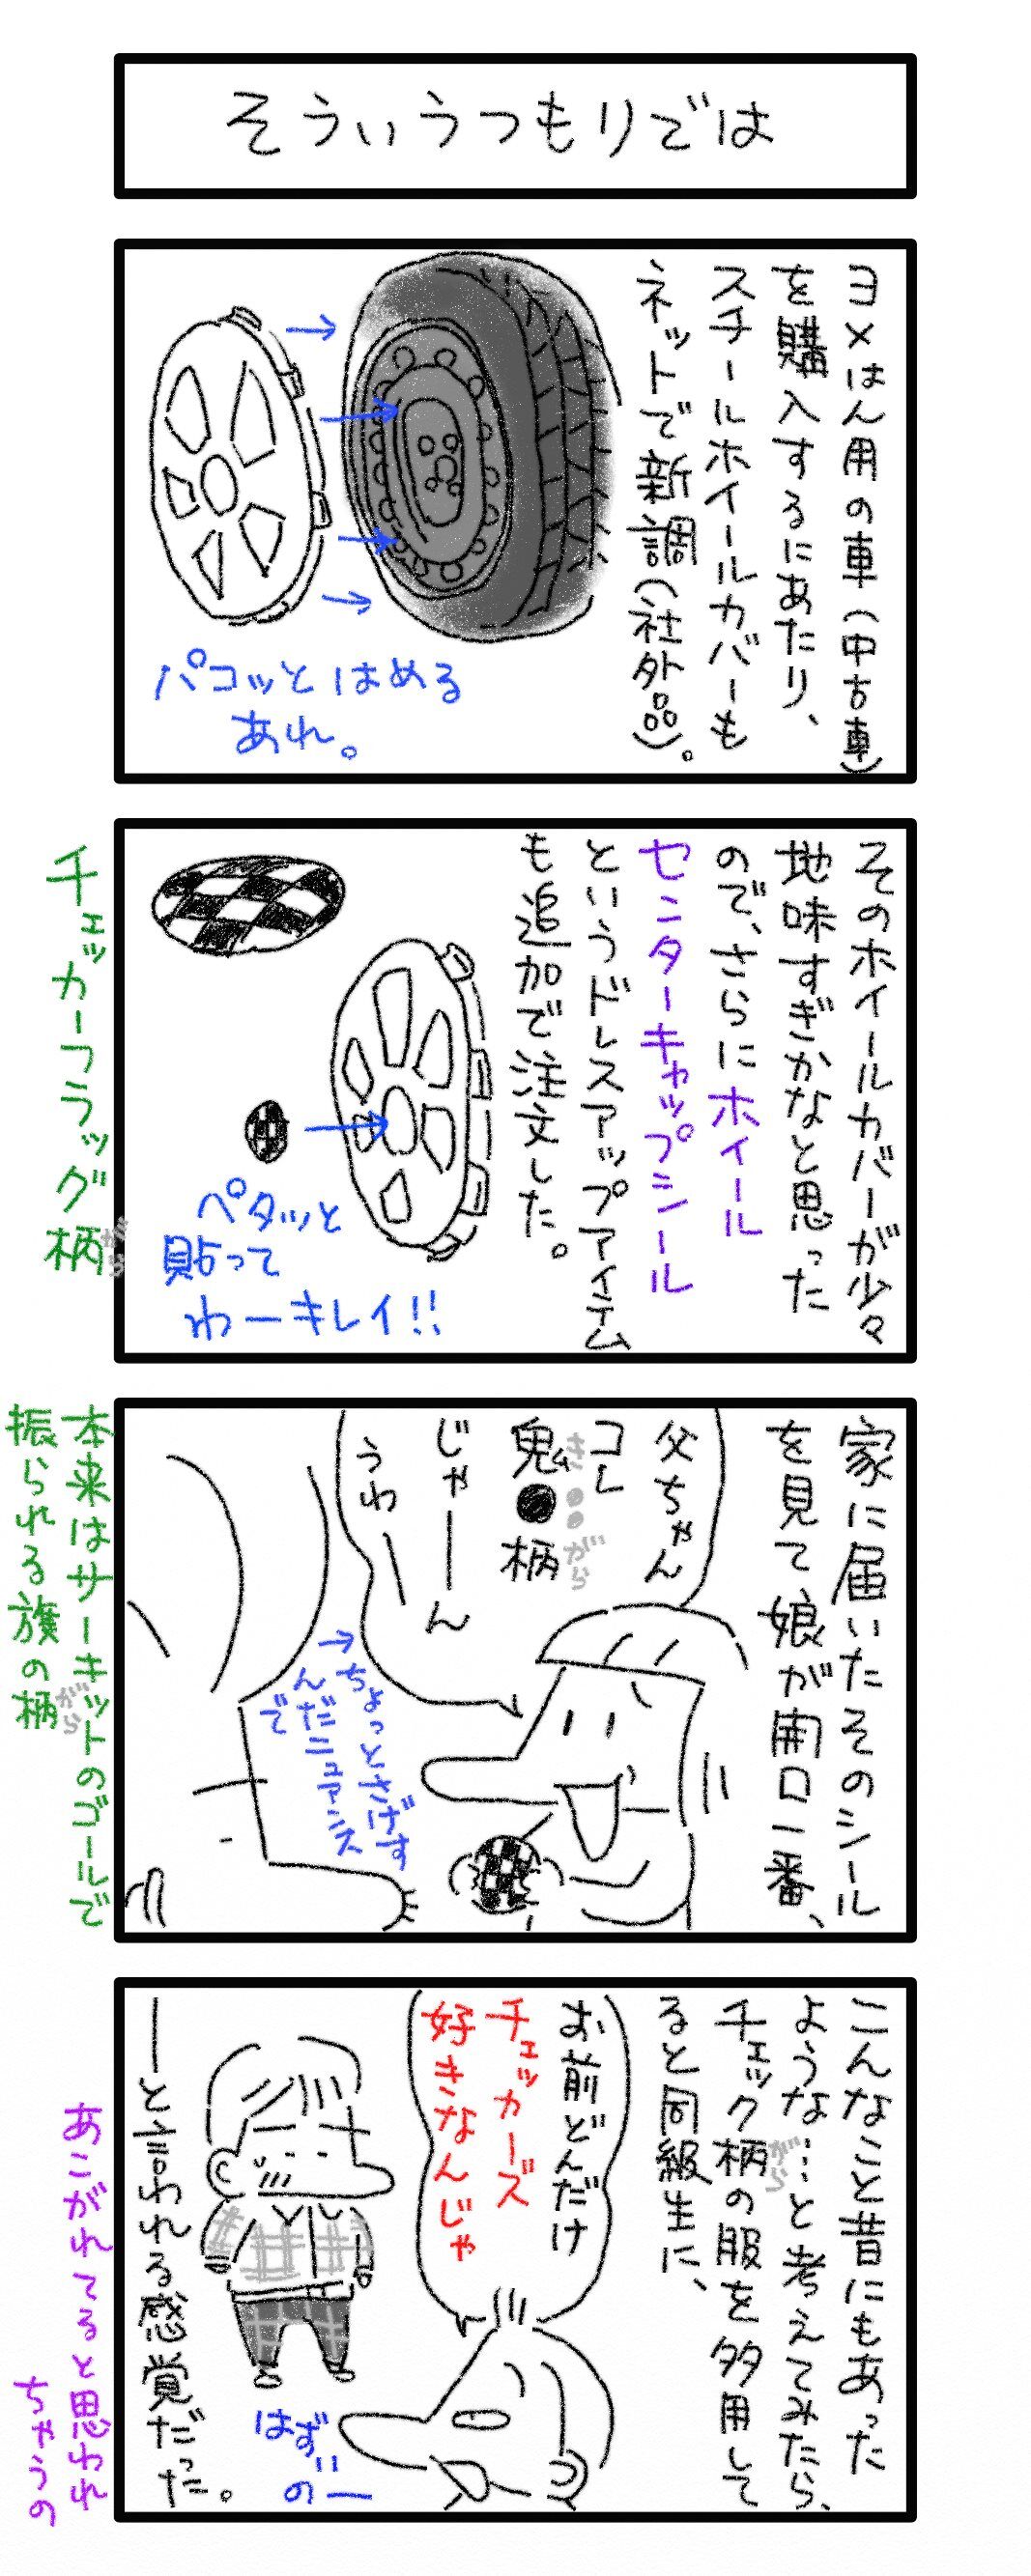 そういうつもりでは
ヨメはん用の車(中古車)
を購入するにあたり、
スチールホイールカバーも
ネットで新調(社外品)。
パコッとはめる
あれ。
そのホイールカバーが少々
地味すぎかなと思った
ので、さらにホイール
センターキャップシール
というドレスアップアイテム
も追加で注文した。
ペタッと
貼って
わーキレイ!!
チェッカーフラッグ柄
がら
家に届いたそのシール
を見て娘が開口一番、
父ちゃん
コレ
鬼●柄
き●●がら
じゃーーん
うわーー
→ちょっとさげす
んだニュアンス
で
本来はサーキットのゴールで
振られる旗の柄
がら
こんなこと昔にもあった
ような…と考えてみたら、
チェック柄の服を多用して
がら
ると同級生に、
お前どんだけ
チェッカーズ
好きなんじゃ
はずいのー
――と言われる感覚だった。
あこがれてると思われ
ちゃうの